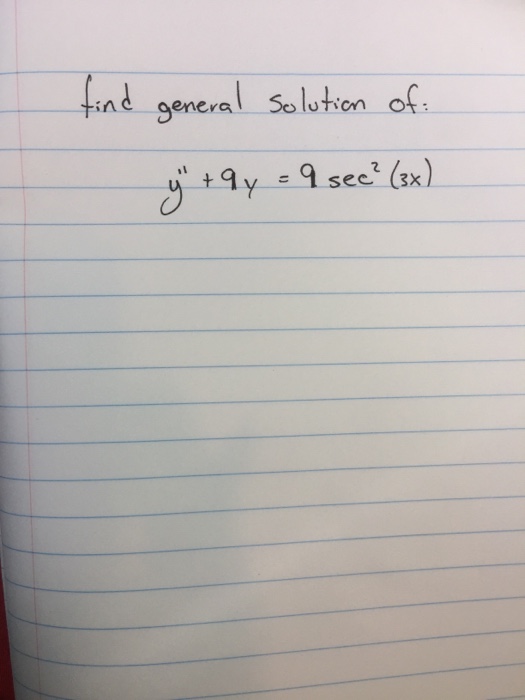 find general solution of:
y'' + 9y = 9 sec² (3x)